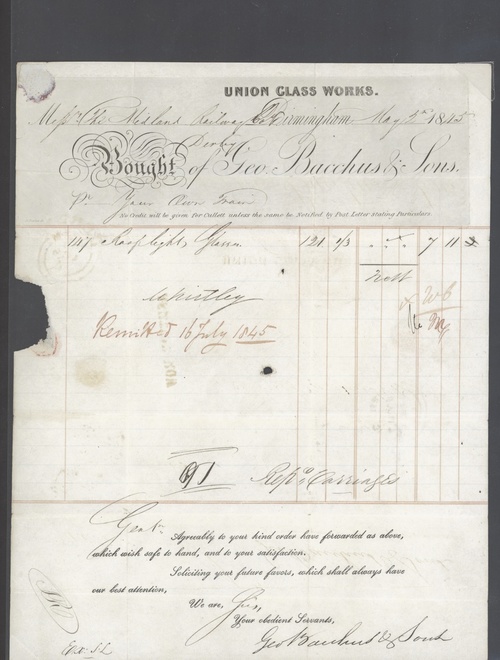 UNION GLASS WORKS.
Messrs The Midland Railway Co Birmingham May 5th 1845
Derby
Bought of Geo. Bacchus & Sons.
Pr Your Own Train
No Credit will be given for Cullett unless the same be Notified by Post Letter Stating Particulars.
147 Rooflight Glasses 121 1/3 7 11
Nett
Whitley
Remitted 16 July 1845
91 Repg Carriages
Gent.
Agreeably to your kind order have forwarded as above,
which wish safe to hand, and to your satisfaction.
Soliciting your future favors, which shall always have
our best attention,
We are, Sirs,
Your obedient Servants,
Geo Bacchus & Sons